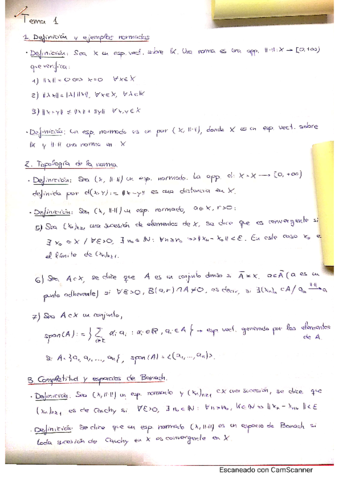 Tema 1
1. Definición y ejemplos normados
• Definición: Sea X un esp. vect. sobre K. Una norma es una app. ||·||: X → [0,+∞)
que verifica:
1) ||x|| = 0 ⟺ x = 0 ∀x∈X
2) ||λx|| = |λ| ||x||, ∀x∈X, ∀λ∈K
3) ||x+y|| ≤ ||x|| + ||y|| ∀x,y∈X
• Definición: Un esp. normado es un par (X, ||·||), donde X es un esp. vect. sobre
K y ||·|| una norma en X
2. Topología de la norma
• Definición: Sea (X, ||·||) un esp. normado. La app. d: X × X → [0,+∞)
definida por d(x,y) = ||x-y|| es una distancia en X.
• Definición: Sea (X, ||·||) un esp. normado, a∈X, r>0:
5) Sea una sucesión de elementos de X, se dice que es convergente si
∃ x₀ ∈ X / ∀ε>0, ∃ n₀∈N: ∀n≥n₀ ||xₙ-x₀||<ε. En este caso x₀ es
el límite de
6) Sea A⊂X, se dice que A es un conjunto denso si Ā = X. a∈Ā (a es un
punto adherente) si ∀ε>0, B(a,r)∩A≠∅, es decir, si ∃
7) Sea A⊂X un conjunto,
span(A) := esp. vect. generado por los elementos
de A
Si A = {a₁, a₂, ..., aₙ}, span(A) = <{a₁, ..., aₙ}>.
3. Completitud y espacios de Banach
• Definición: Sea (X, ||·||) un esp. normado y ⊂X una sucesión, se dice que
es de Cauchy si ∀ε>0, ∃ n₀∈N:
• Definición: Se dice que un esp. normado (X, ||·||) es un espacio de Banach si
toda sucesión de Cauchy en X es convergente en X
Escaneado con CamScanner